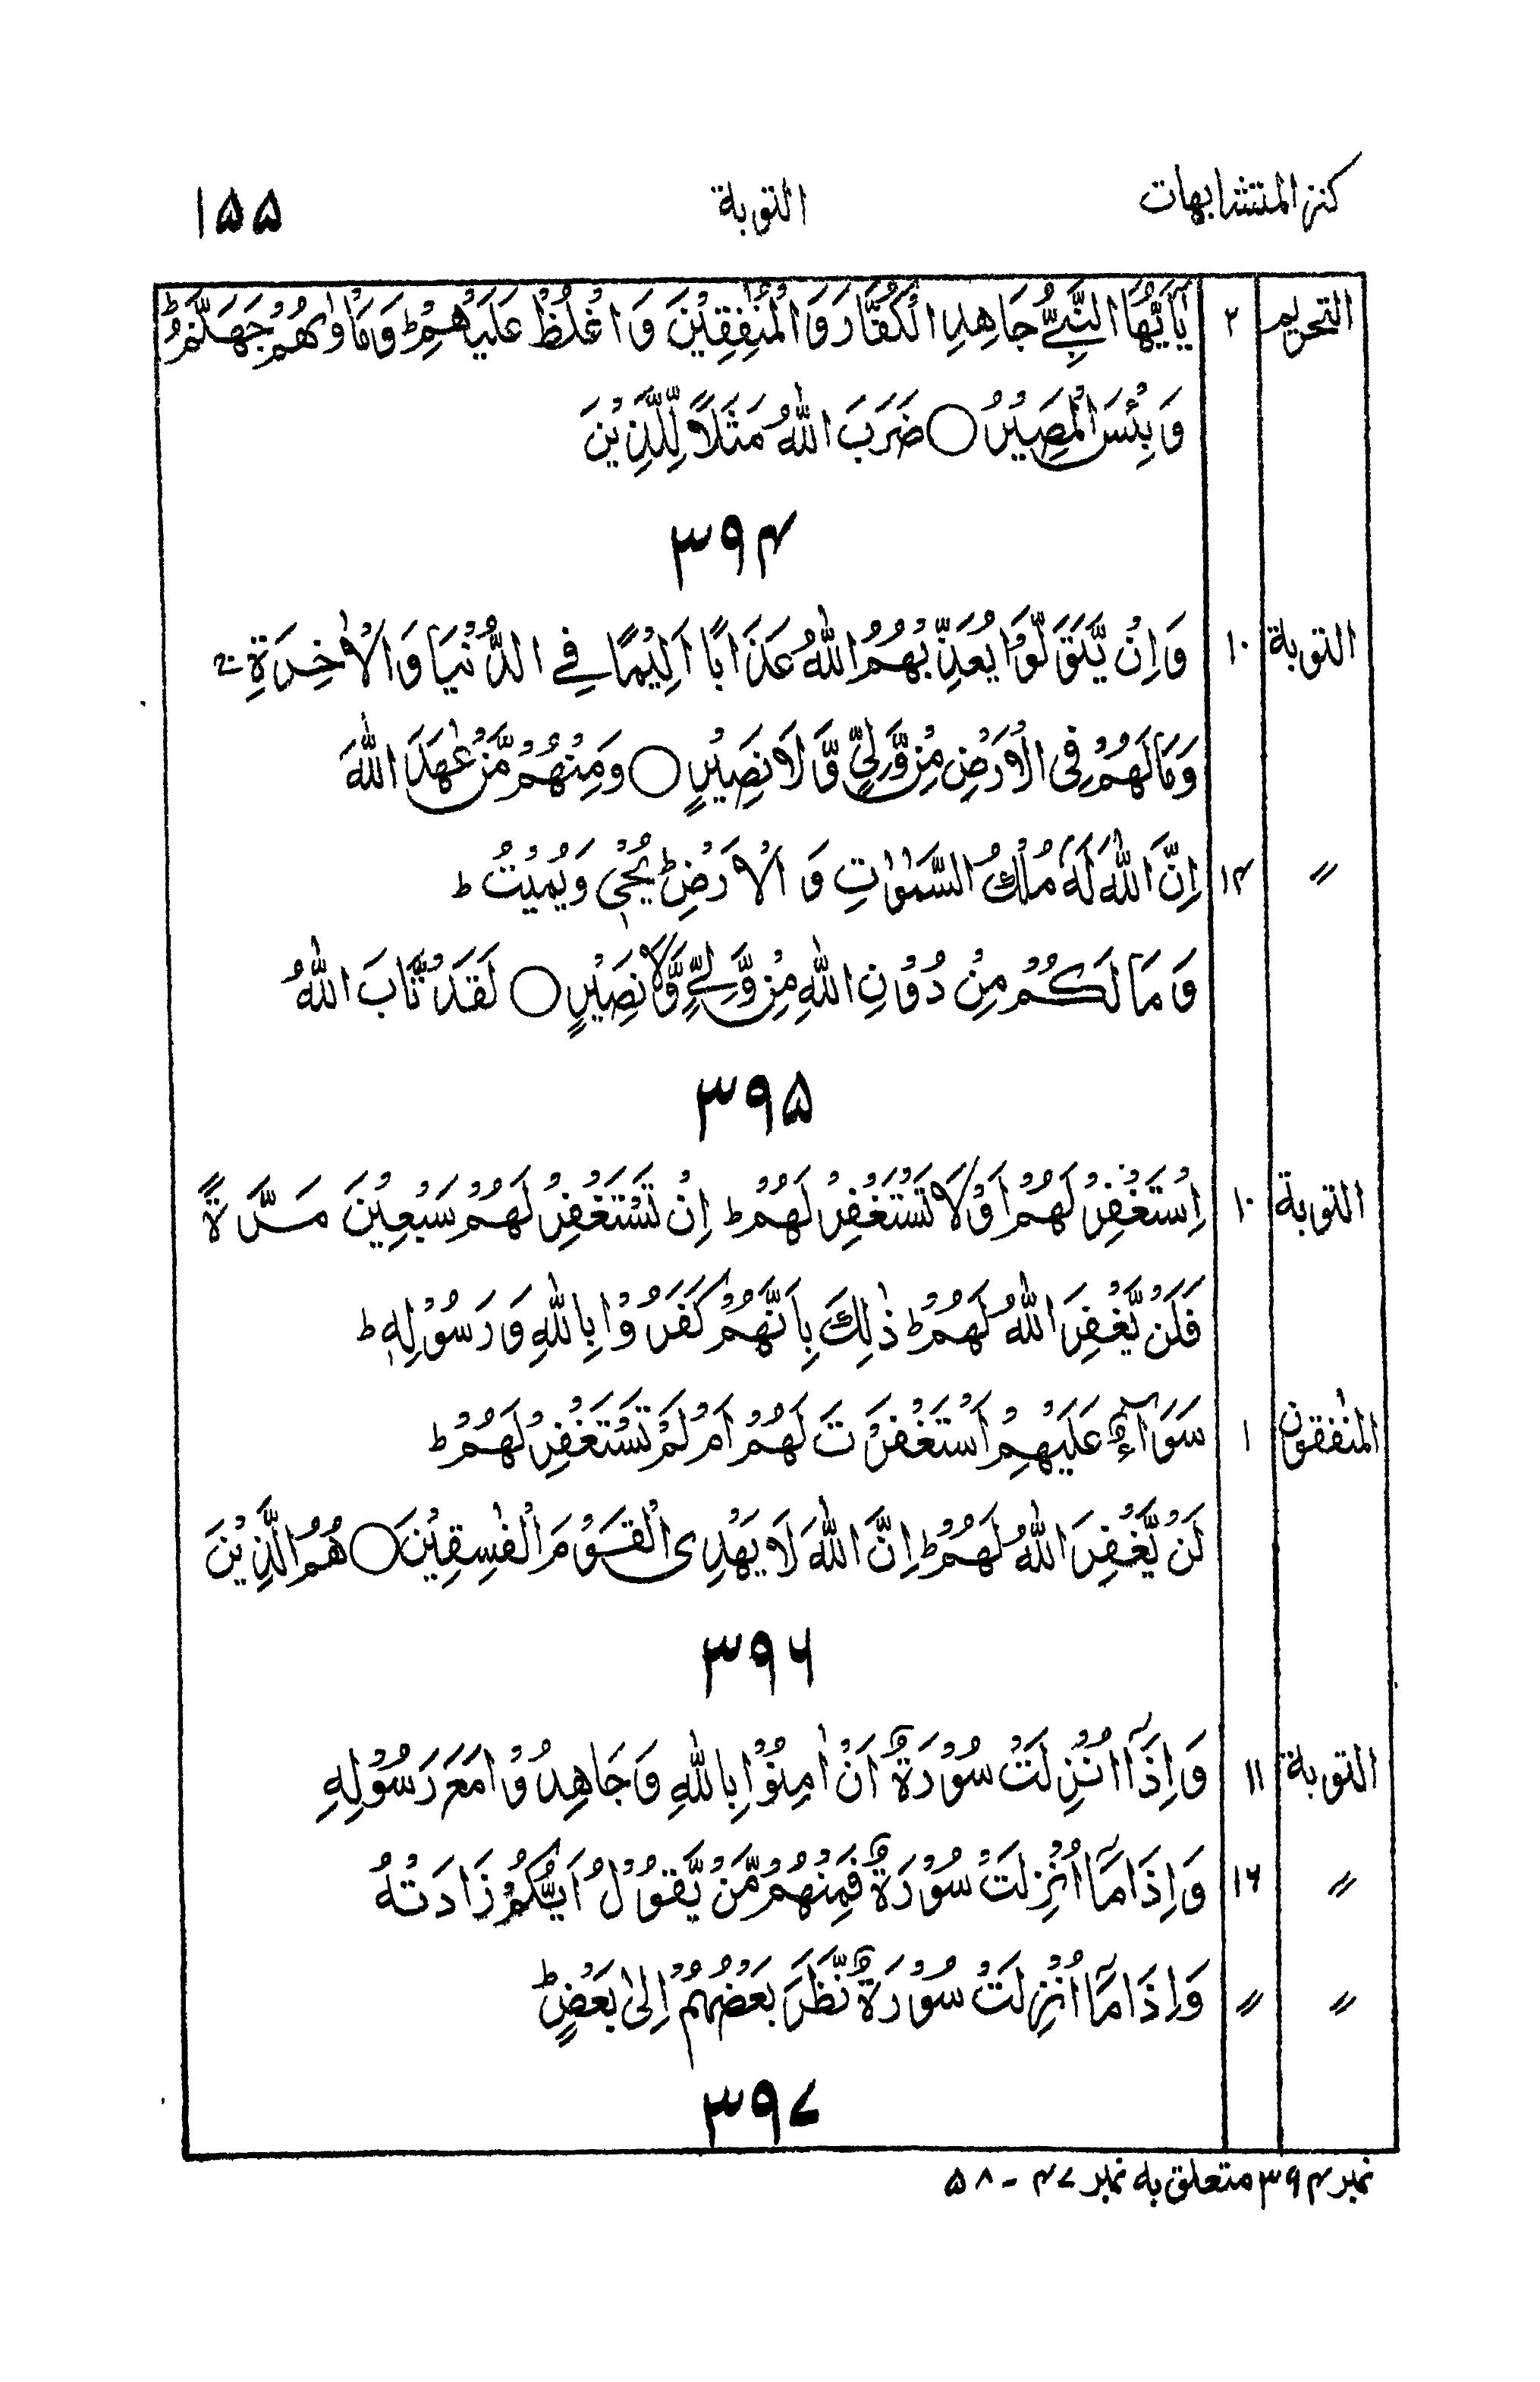 كنز المتشابهات التوبة ۱۵۵
التحريم ۲ يٰٓاَيُّهَا النَّبِىُّ جَاهِدِ الْكُفَّارَ وَالْمُنٰفِقِيْنَ وَاغْلُظْ عَلَيْهِمْ ؕ وَمَاْوٰىهُمْ جَهَنَّمُ ؕ
وَبِئْسَ الْمَصِيْرُ ○ ضَرَبَ اللّٰهُ مَثَلًا لِّلَّذِيْنَ
۳۹۴
التوبة ۱۰ وَاِنْ يَّتَوَلَّوْا يُعَذِّبْهُمُ اللّٰهُ عَذَابًا اَلِيْمًا فِى الدُّنْيَا وَالْاٰخِرَةِ ۚ
وَمَا لَهُمْ فِى الْاَرْضِ مِنْ وَّلِىٍّ وَّلَا نَصِيْرٍ ○ وَمِنْهُمْ مَّنْ عٰهَدَ اللّٰهَ
〃 ۱۴ اِنَّ اللّٰهَ لَهٗ مُلْكُ السَّمٰوٰتِ وَ الْاَرْضِ ؕ يُحْىٖ وَيُمِيْتُ ؕ
وَمَا لَكُمْ مِنْ دُوْنِ اللّٰهِ مِنْ وَّلِىٍّ وَّلَا نَصِيْرٍ ○ لَقَدْ تَّابَ اللّٰهُ
۳۹۵
التوبة ۱۰ اِسْتَغْفِرْ لَهُمْ اَوْ لَا تَسْتَغْفِرْ لَهُمْ ؕ اِنْ تَسْتَغْفِرْ لَهُمْ سَبْعِيْنَ مَرَّةً
فَلَنْ يَّغْفِرَ اللّٰهُ لَهُمْ ؕ ذٰلِكَ بِاَنَّهُمْ كَفَرُوْا بِاللّٰهِ وَرَسُوْلِهٖ ؕ
المنٰفقون ۱ سَوَآءٌ عَلَيْهِمْ اَسْتَغْفَرْتَ لَهُمْ اَمْ لَمْ تَسْتَغْفِرْ لَهُمْ ؕ
لَنْ يَّغْفِرَ اللّٰهُ لَهُمْ ؕ اِنَّ اللّٰهَ لَا يَهْدِى الْقَوْمَ الْفٰسِقِيْنَ ○ هُمُ الَّذِيْنَ
۳۹۶
التوبة ۱۱ وَاِذَآ اُنْزِلَتْ سُوْرَةٌ اَنْ اٰمِنُوْا بِاللّٰهِ وَجَاهِدُوْا مَعَ رَسُوْلِهِ
〃 ۱۶ وَاِذَا مَآ اُنْزِلَتْ سُوْرَةٌ فَمِنْهُمْ مَّنْ يَّقُوْلُ اَيُّكُمْ زَادَتْهُ
〃 〃 وَاِذَا مَآ اُنْزِلَتْ سُوْرَةٌ نَّظَرَ بَعْضُهُمْ اِلٰى بَعْضٍ ؕ
۳۹۷
نمبر ۳۹۴ متعلق به نمبر ۴۷ - ۵۸